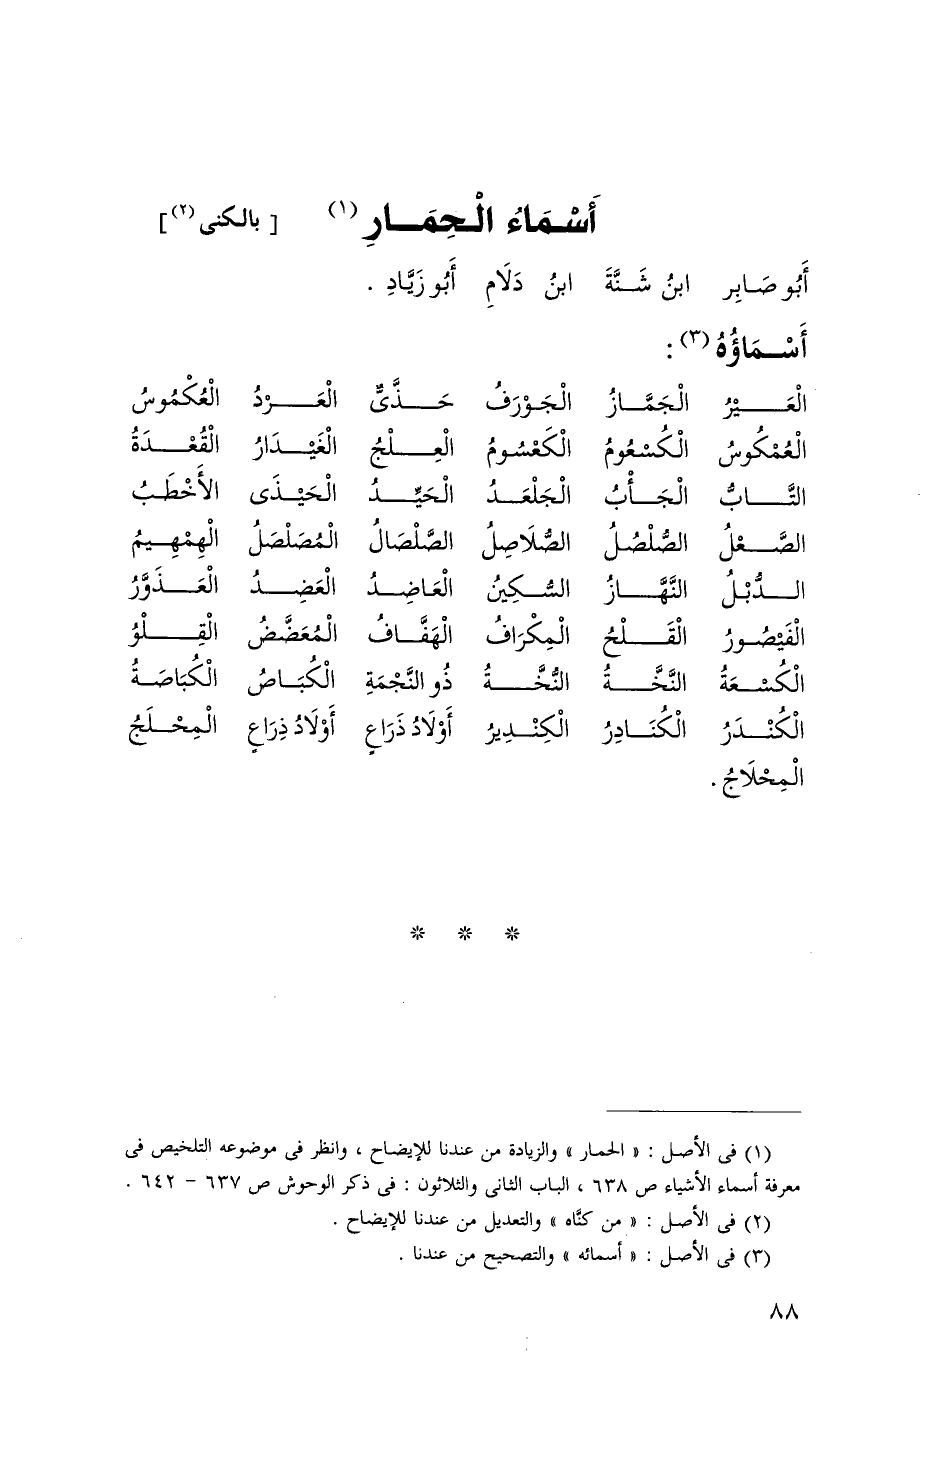 أَسْمَاءُ الْحِمَــارِ (١) [ بالكنى (٢) ]
أَبُو صَابِر ابنُ شَنَّةَ ابنُ دَلَامِ أَبُو زَيَّادِ .
أَسْمَاؤُهُ (٣) :
الْعَيْرُ الْجَمَّازُ الْجَوْرَفُ حَذَّىٌّ الْعَرْدُ الْعُكْمُوسُ
الْعُمْكُوسُ الْكُسْعُومُ الْكُعْسُومُ الْعِلْجُ الْغَيْدَارُ الْقُعْدَةُ
التَّابُّ الْجَأْبُ الْجَلْعَدُ الْحَيِّدُ الْحَيْدَى الأَخْطَبُ
الصَّعْلُ الصُّلْصُلُ الصُّلَاصِلُ الصَّلْصَالُ الْمُصَلْصَلُ الْهِمْهِيمُ
الدُّبْلُ النَّهَّازُ السُّكَيْنُ الْعَاضِدُ الْعَضِدُ الْعَذَوَّرُ
الْقَيْصُورُ الْقَلْحُ الْمِكْرَافُ الْهَفَّافُ الْمُعَضَّضُ الْقِلْوُ
الْكُسْعَةُ النَّخَّةُ النُّخَّةُ ذُو النَّجْمَةِ الْكُبَاصُ الْكُبَاصَةُ
الْكُنْدَرُ الْكُنَادِرُ الْكِنْدِيرُ أَوْلَادُ ذَرَاعٍ أَوْلَادُ ذِرَاعٍ الْمِحْلَجُ
الْمِحْلَاجُ .
* * *
(١) فى الأصل : « الحمار » والزيادة من عندنا للإيضاح ، وانظر فى موضوعه التلخيص فى
معرفة أسماء الأشياء ص ٦٣٨ ، الباب الثانى والثلاثون : فى ذكر الوحوش ص ٦٣٧ – ٦٤٢ .
(٢) فى الأصل : « من كنَّاه » والتعديل من عندنا للإيضاح .
(٣) فى الأصل : « أسمائه » والتصحيح من عندنا .
٨٨